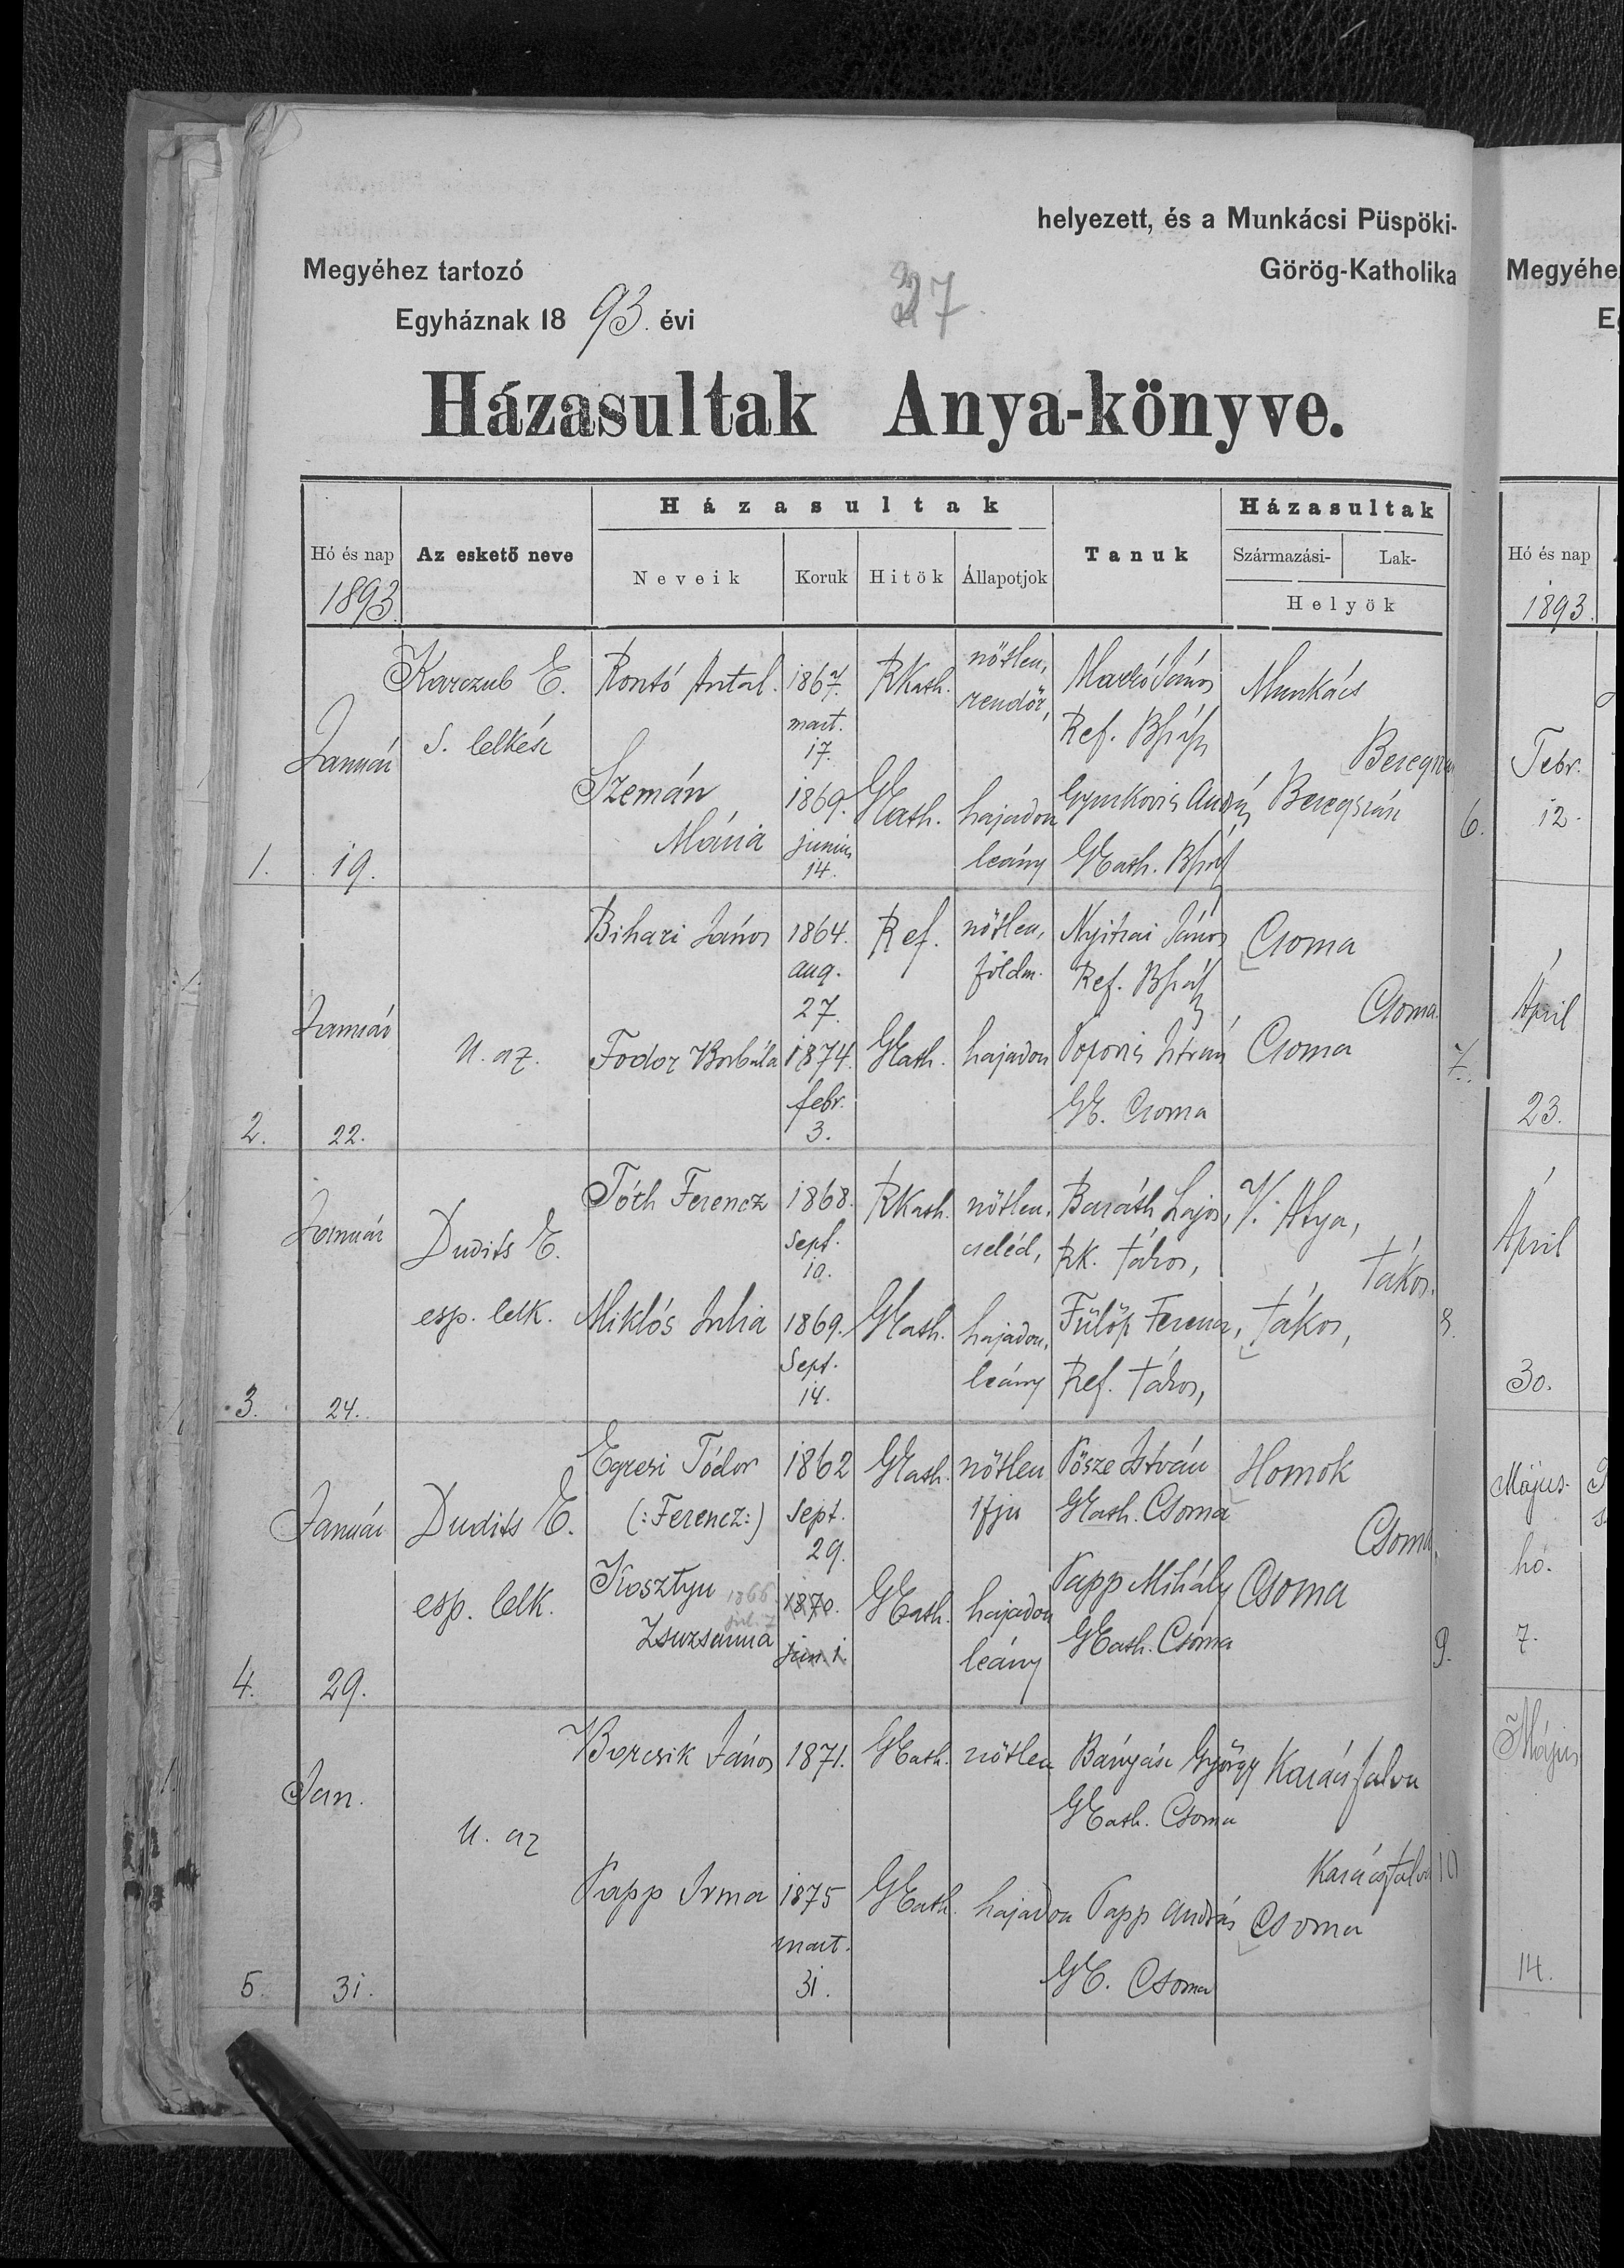 helyezett, és a Munkácsi Püspöki-
Megyéhez tartozó Görög-Katholika
Egyháznak 1893. évi
37.
Házasultak Anya-könyve.
Hó és nap
1893.
Az eskető neve
Házasultak
Neveik Koruk Hitök Állapotjok
Tanuk
Házasultak
Származási- Lak-
Helyök
1. Január 19.
Karczub E.
s. lelkész
Rontó Antal. 1867. mart. 17. RKath. nőtlen, rendőr,
Markó János
Ref. Bhász
Munkács
Szemán Mária 1869. junius 14. GKath. hajadon leány
Gyurkovis András
GKath. Bhász
Beregszász
2. Január 22.
U. az.
Bihari János 1864. aug. 27. Ref. nőtlen, földm.
Nyitrai János
Ref. Bhász
Csoma
Csoma.
Fodor Borbála 1874. febr. 3. GKath. hajadon
Popovis István
GK. Csoma
Csoma
3. Január 24.
Dudits E.
esp. lelk.
Tóth Ferencz 1868. sept. 10. RKath. nőtlen, cseléd,
Baráth Lajos,
RK. Tákos,
V. Atya,
Tákos.
Miklós Julia 1869. Sept. 14. GKath. hajadon, leány
Fülöp Ferencz,
Ref. Tákos,
Tákos,
4. Január 29.
Dudits E.
esp. lelk.
Egresi Tódor
(:Ferencz:) 1862 Sept. 29. GKath. nőtlen ifju
Pősze István
GKath. Csoma
Homok
Csoma.
Kosztyu Zsuzsanna 1866. jul. 7 1870. jun 1. GKath. hajadon leány
Papp Mihály
GKath. Csoma
Csoma
5. Jan. 31.
U. az
Borcsik János 1871. GKath. nőtlen
Bányász György
GKath. Csoma
Karácsfalva
Karácsfalva
Papp Irma 1875 mart. 31. GKath. hajadon
Papp András
GK. Csoma
Csoma
Megyéhe
Hó és nap
1893.
6. Febr. 12.
7. April 23.
8. April 30.
9. Május hó. 7.
10 Május 14.